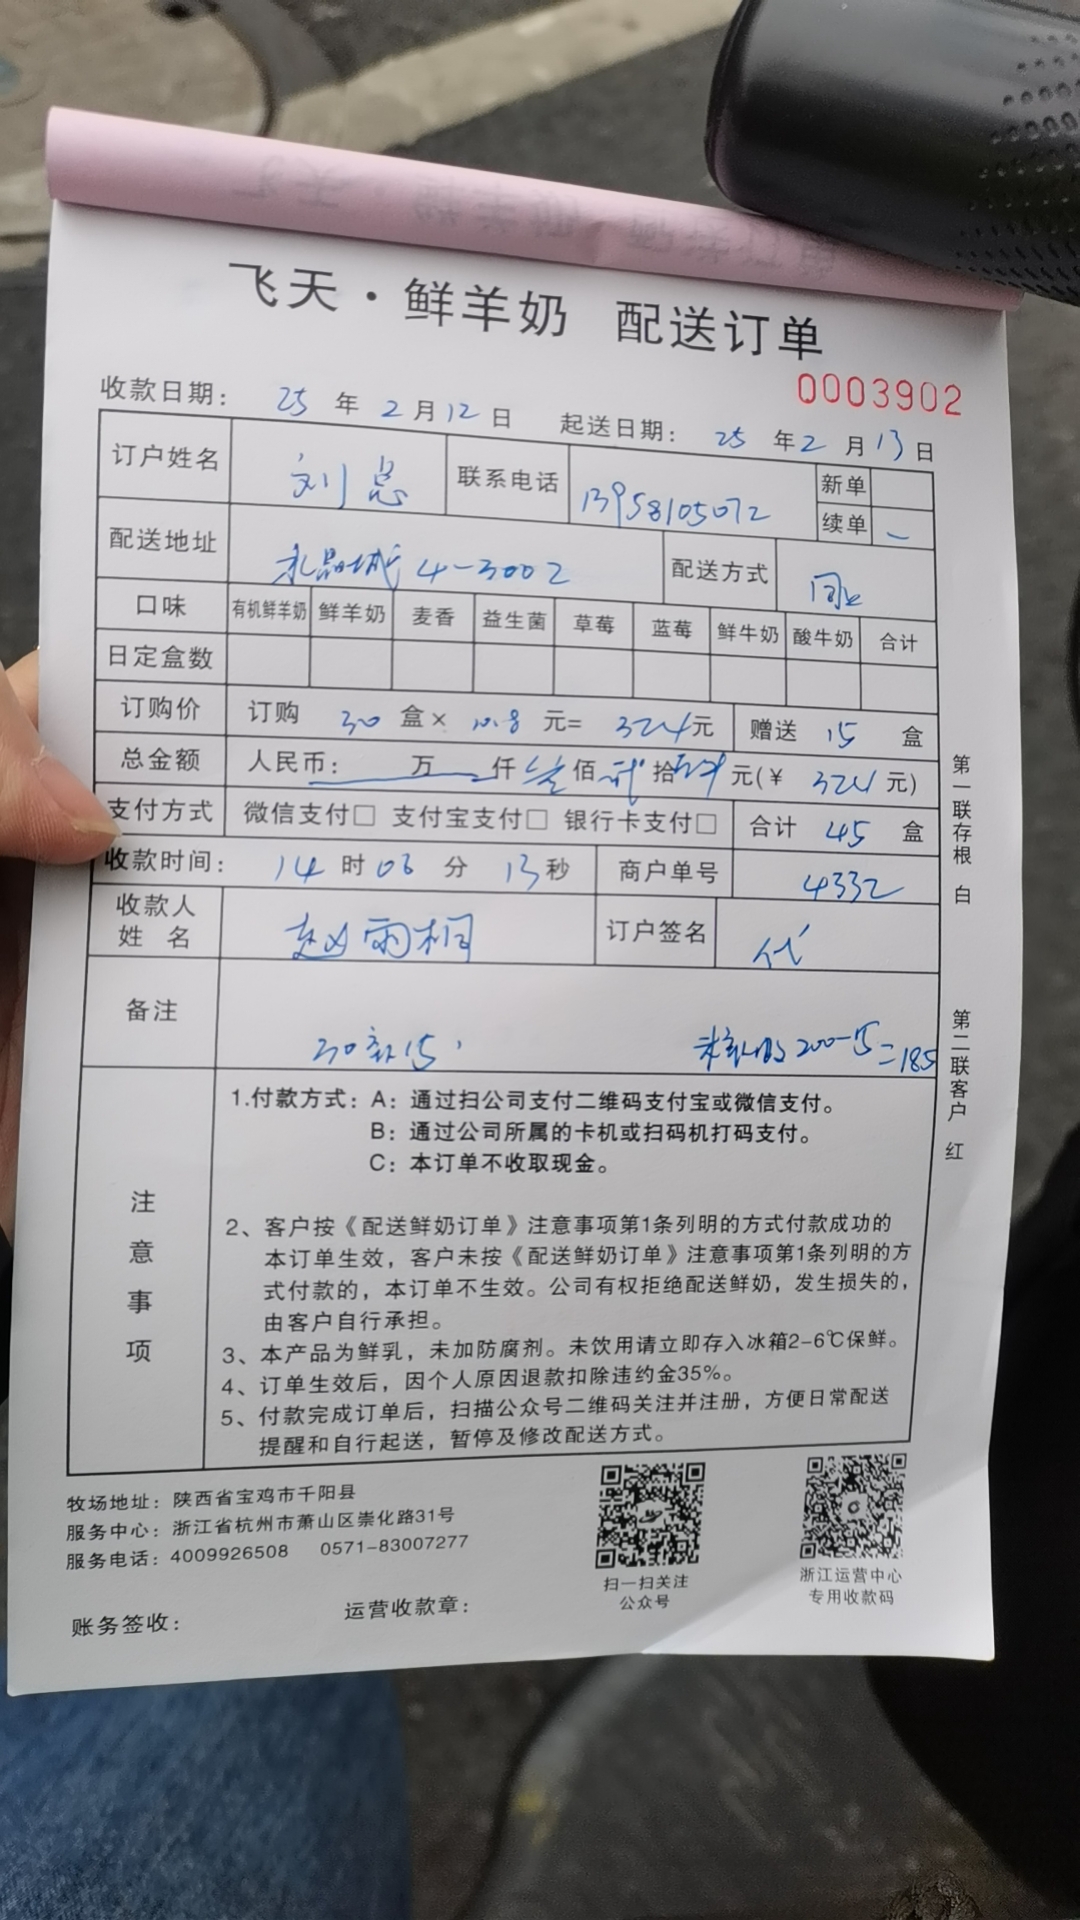 飞天·鲜羊奶 配送订单
0003902
收款日期: 25 年 2 月 12 日 起送日期: 25 年 2 月 13 日
订户姓名 刘总 联系电话 13958105072 新单
续单
配送地址 水晶城 4-3002 配送方式 同上
口味 有机鲜羊奶 鲜羊奶 麦香 益生菌 草莓 蓝莓 鲜牛奶 酸牛奶 合计
日定盒数
订购价 订购 30 盒× 10.8 元= 324元 赠送 15 盒
总金额 人民币: 万 仟 叁 佰 贰 拾 肆 元(¥ 324 元)
支付方式 微信支付□ 支付宝支付□ 银行卡支付□ 合计 45 盒
收款时间: 14 时 03 分 13 秒 商户单号 4332
收款人
姓 名 赵雨桐 订户签名 代
备注 30 15 200-15=185
注意事项
1.付款方式:A:通过扫公司支付二维码支付宝或微信支付。
B:通过公司所属的卡机或扫码机打码支付。
C:本订单不收取现金。
2、客户按《配送鲜奶订单》注意事项第1条列明的方式付款成功的
本订单生效,客户未按《配送鲜奶订单》注意事项第1条列明的方
式付款的,本订单不生效。公司有权拒绝配送鲜奶,发生损失的,
由客户自行承担。
3、本产品为鲜乳,未加防腐剂。未饮用请立即存入冰箱2-6℃保鲜。
4、订单生效后,因个人原因退款扣除违约金35%。
5、付款完成订单后,扫描公众号二维码关注并注册,方便日常配送
提醒和自行起送,暂停及修改配送方式。
第一联存根 白
第二联客户 红
牧场地址:陕西省宝鸡市千阳县
服务中心:浙江省杭州市萧山区崇化路31号
服务电话:4009926508 0571-83007277
扫一扫关注
公众号
浙江运营中心
专用收款码
账务签收: 运营收款章: